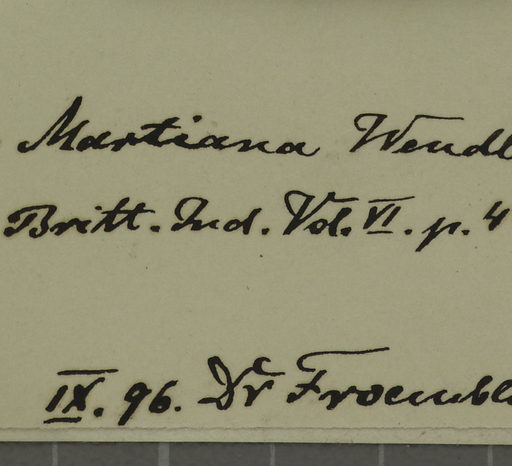 Martiana Wendl
Britt. Ind. Vol. VI. p. 4
IX. 96. Dr Froembl